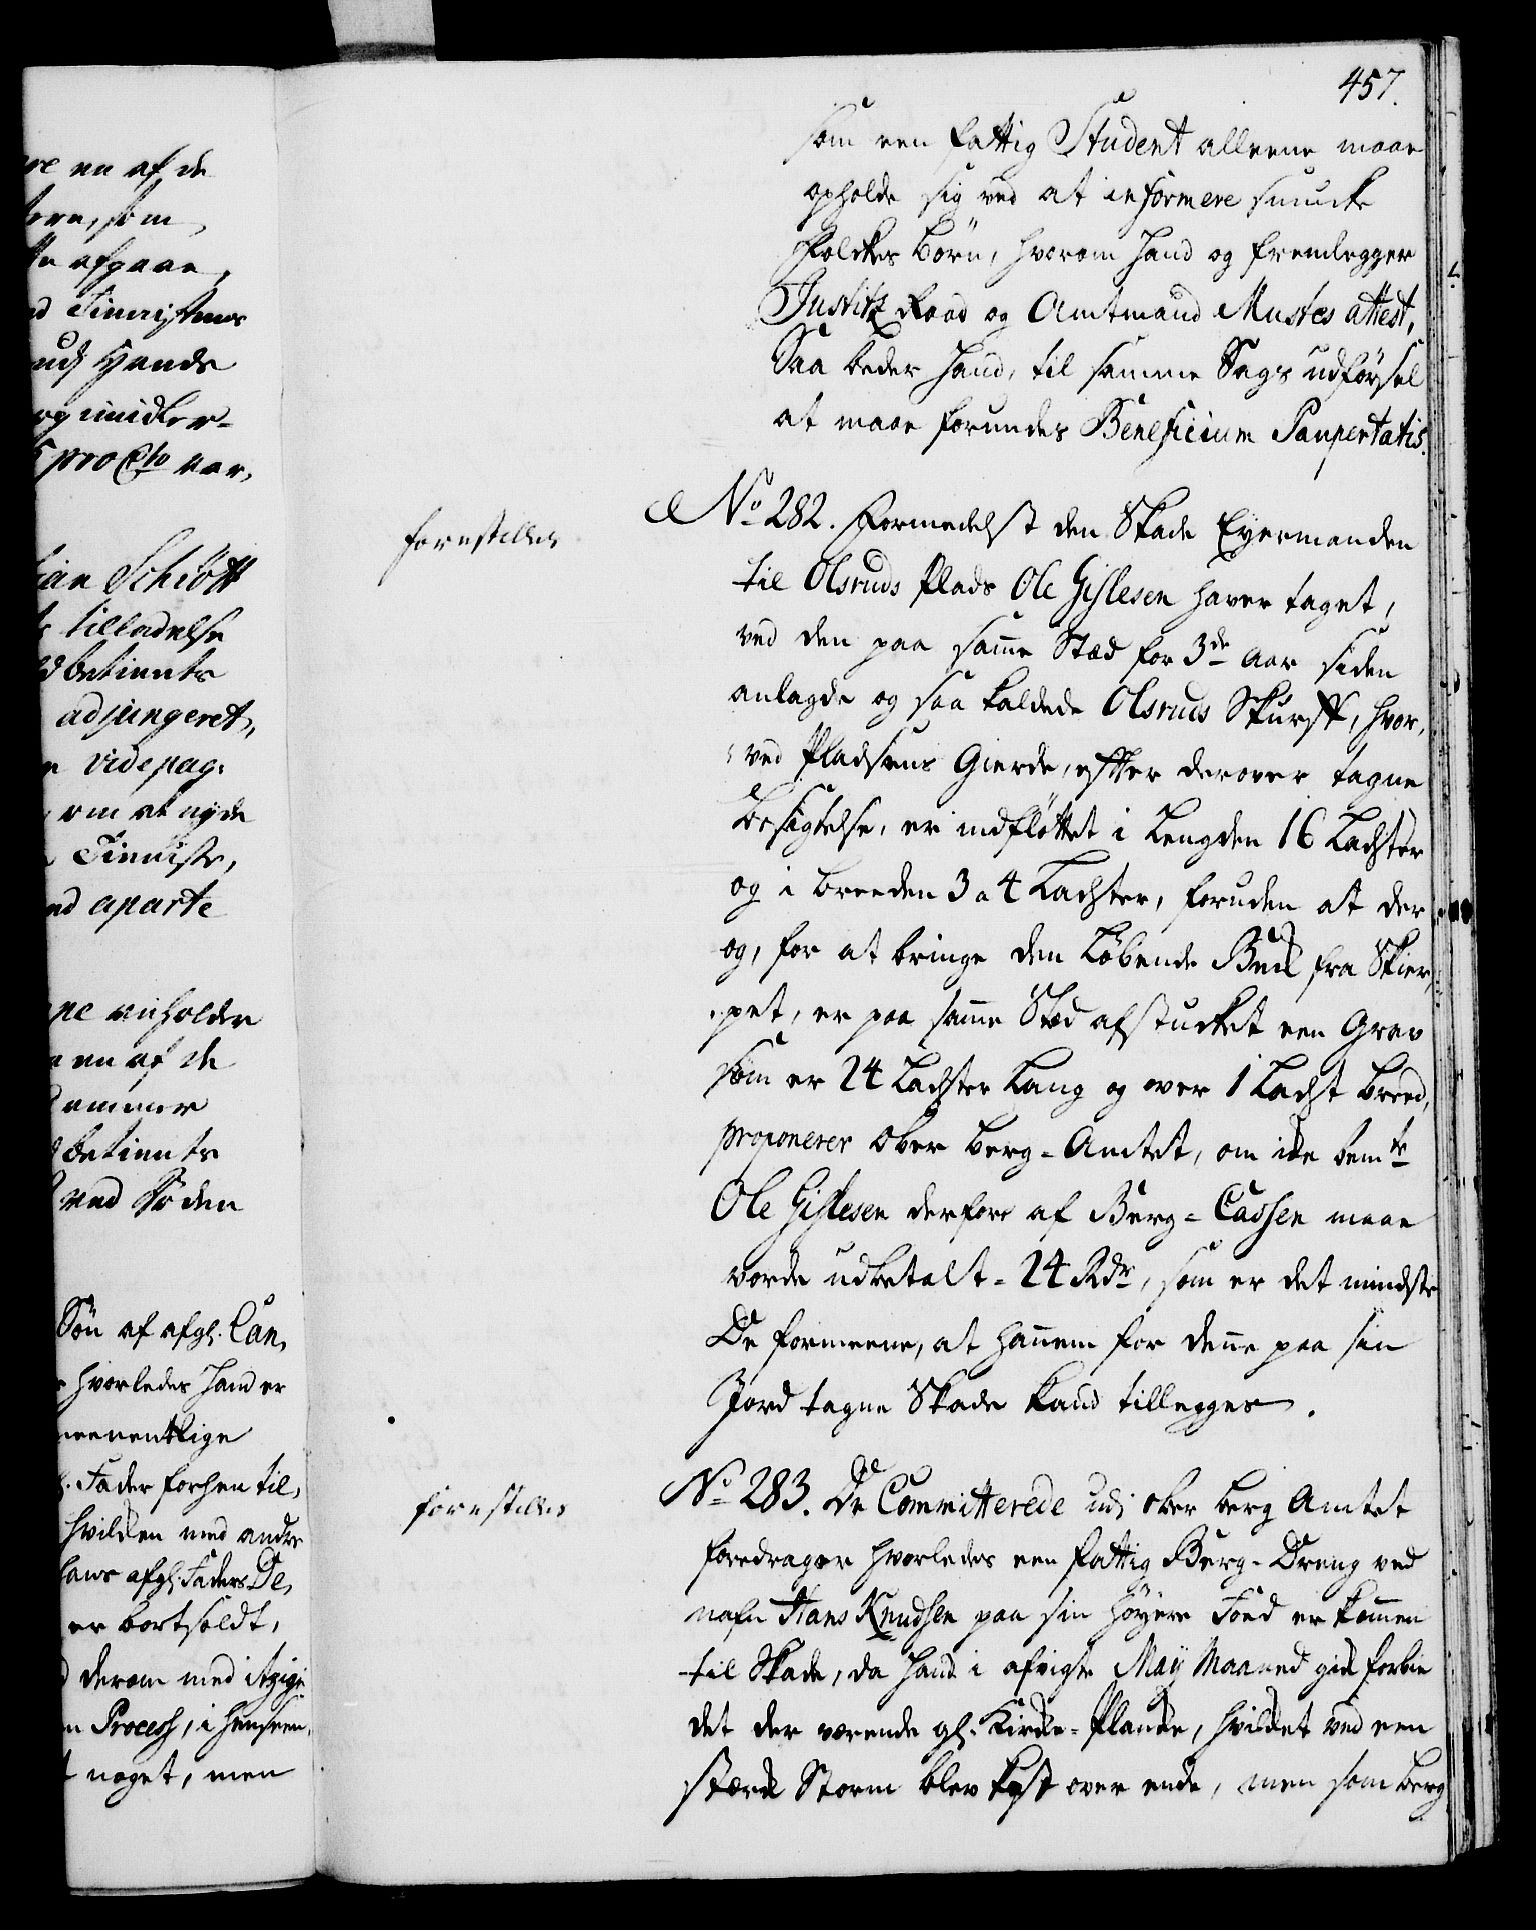 457.
som een fattig Student alleene maae
opholde sig ved at informere smucke
Folckes Börn, hvorom hand og fremlegger
Justitz Raad og Amtmand Mustes attest,
Saa beder hand, til samme Sags udförsel
at maae forundes Beneficium Paupertatis.
forestilles
No 282. Formedelst den Skade Eyermanden
til Olsruds Plads Ole Gislesen haver taget,
ved den paa samme Stæd for 3de Aar siden
anlagde og saa kaldede Olsruds Skurff, hvor,
ved Pladsens Gierde, efter derover tagne
besigtelse, er indflöttet i Lengden 16 Lachter
og i breeden 3 a 4 Lachter, foruden at der
og, for at bringe den Löbende Beck fra Skier,
pet, er paa samme Stæd afstucket een Grav
som er 24 Lachter Lang og over 1 Lacht breed,
proponerer Ober Berg-Amtet, om icke bemte
Ole Gislesen derfore af Berg-Cassen maae
vorde udbetalt - 24 Rdr, som er det mindste
De formeene, at hannem for denne paa sin
Jord tagne Skade kand tillegges.
forestilles
No 283. De Committerede udj ober berg Amtet
foredrager hvorledes een fattig Berg-Dreng ved
nafn Hans Knudsen paa sin höyere Foed er kommen
til Skade, da hand i afvigte Maij Maaned gick forbie
det der værende gl. Kircke-Plancke, hvilcket ved een
stærck Storm blev kast over ende, men som berg
re en af de
som
afgaae,
ud Hands
5 pro Cto
ian Schiött
tilladelse
betiente
adjungeret,
vide pag:
om at nyde
aparte
en af de
betiente
ved
Sön af afg. Can,
hvorledes hand er
Fader forhen til,
hvilcken med andre
hans afg. Faders De,
er bortsoldt,
derom med
Process, i henseen,
noget, men